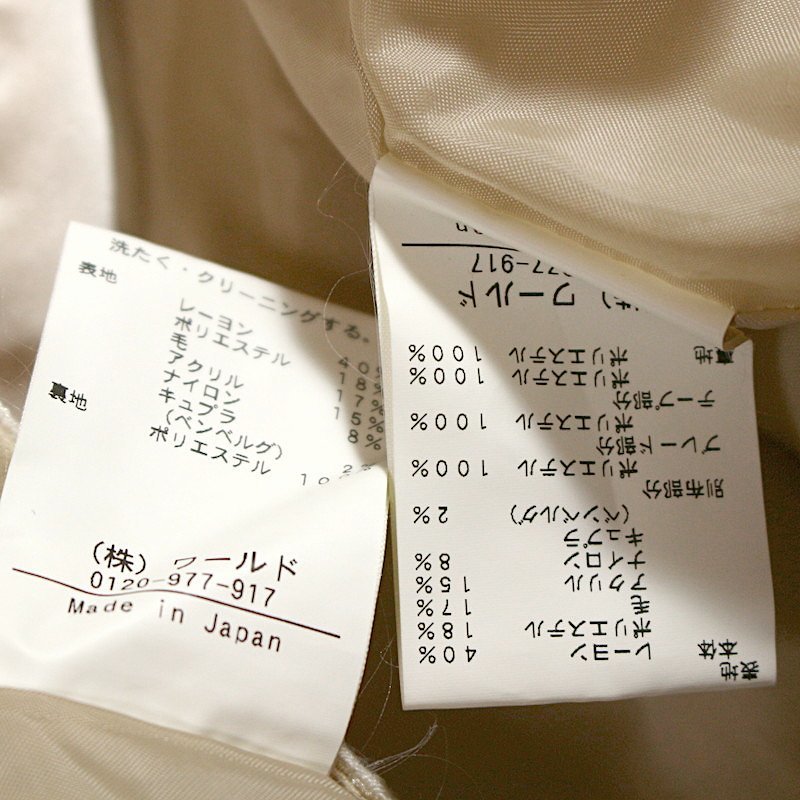 洗たく・クリーニングする。
表地
レーヨン 40%
ポリエステル 18%
毛 17%
アクリル 15%
ナイロン 8%
キュプラ
(ベンベルグ) 2%
裏地 ポリエステル 100%
(株) ワールド
0120-977-917
Made in Japan
表地
本体
レーヨン 40%
ポリエステル 18%
毛 17%
アクリル 15%
ナイロン 8%
キュプラ
(ベンベルグ) 2%
別布部分
ポリエステル 100%
ブレード部分
ポリエステル 100%
テープ部分
ポリエステル 100%
裏地 ポリエステル 100%
ワールド
977-917